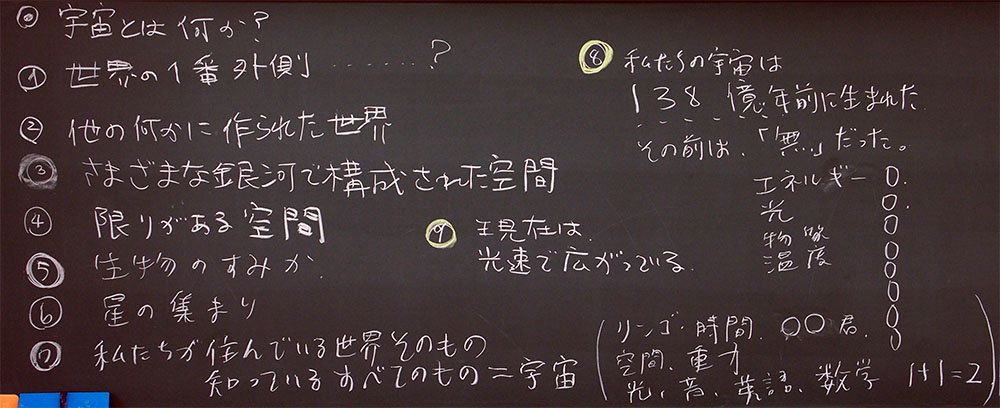 ⓪ 宇宙とは何か?
① 世界の1番外側………?
② 他の何かに作られた世界
③ さまざまな銀河で構成された空間
④ 限りがある空間
⑤ 生物のすみか
⑥ 星の集まり
⑦ 私たちが住んでいる世界そのもの
知っているすべてのもの=宇宙
(リンゴ、時間、○○君、
空間、重力
光、音、英語、数学 1+1=2)
⑧ 私たちの宇宙は
138億年前に生まれた
その前は、「無」だった。
エネルギー 0.
光 0.
物質 0
温度 0
0
0
0
⑨ 現在は、
光速で広がっている。